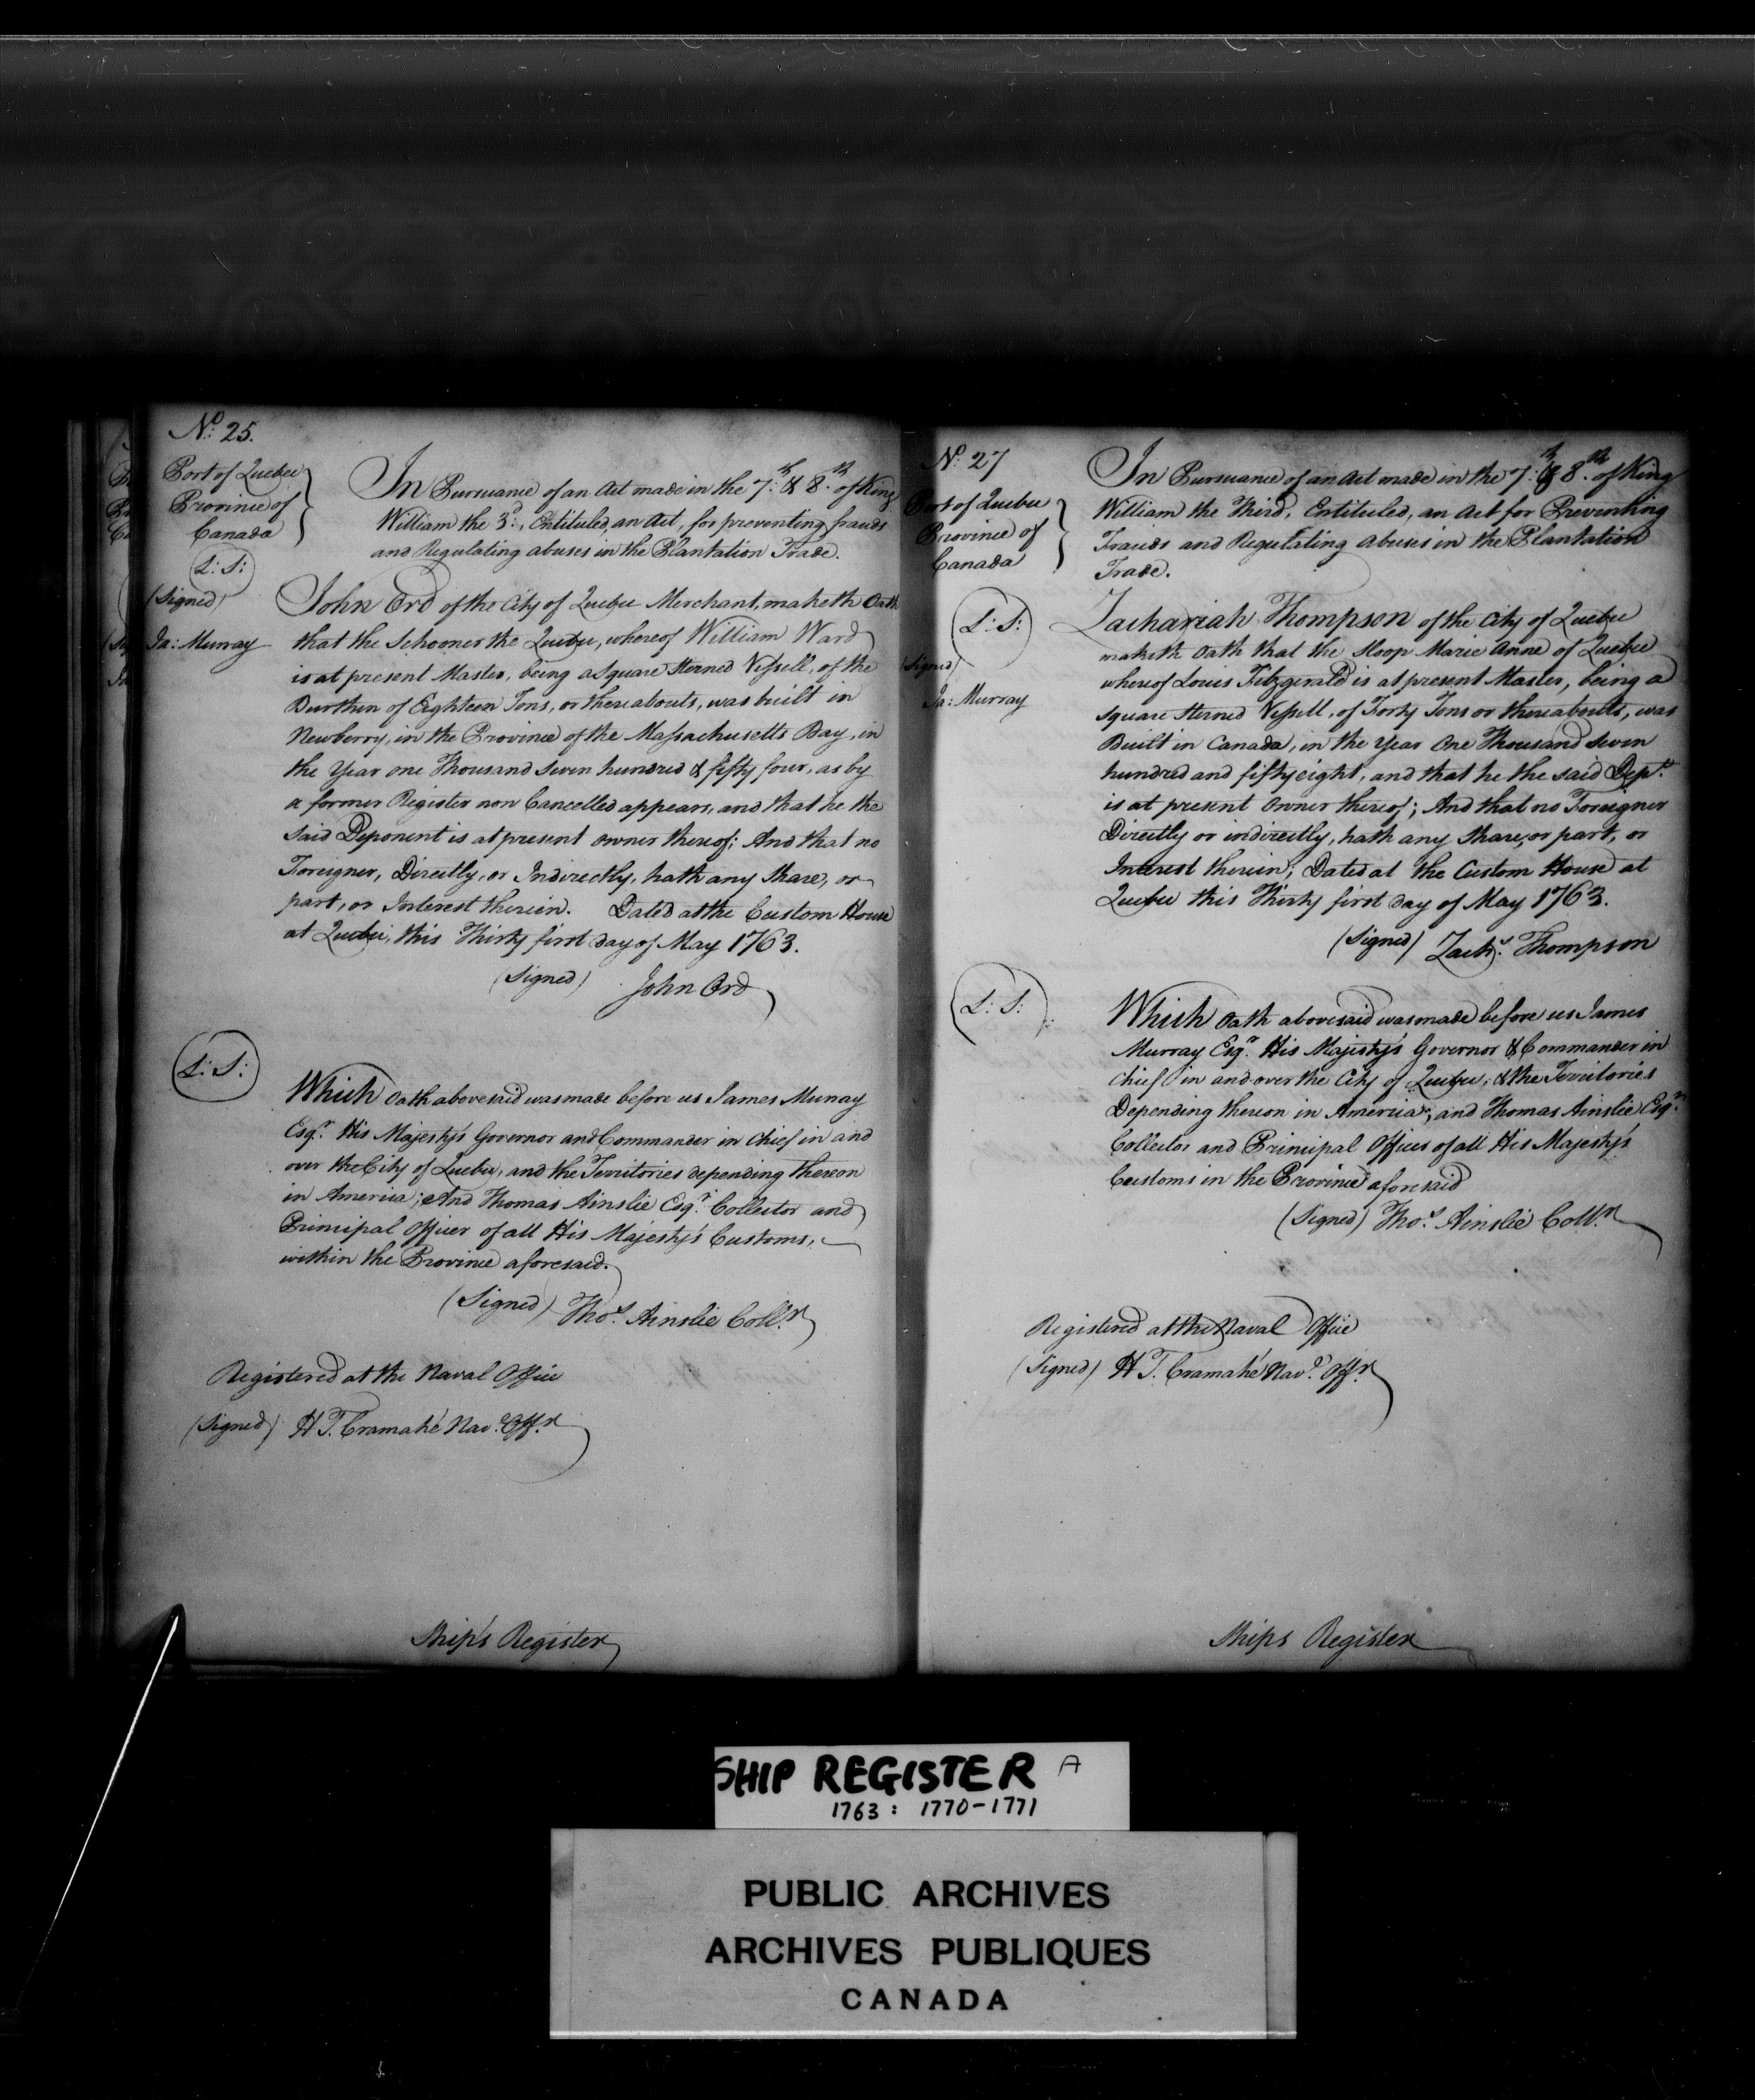 No: 25.
Port of Quebec
Province of
Canada
L: S:
(Signed)
Ja: Murray
In Pursuance of an Act made in the 7th & 8th of King
William the 3d:, Entituled, an Act, for preventing frauds
and Regulating abuses in the Plantation Trade.
John Ord of the City of Quebec Merchant, maketh Oath
that the Schooner the Quebec, whereof William Ward
is at present Master, being a Square Sterned Vessell, of the
Burthen of Eighteen Tons, or thereabouts, was built in
Newberry, in the Province of the Massachusetts Bay, in
the Year one Thousand Seven hundred & fifty four, as by
a former Register now Cancelled appears, and that he the
Said Deponent is at present owner thereof; And that no
Foreigner, Directly, or Indirectly, hath any Share, or
part, or Interest therein. Dated at the Custom House
at Quebec, this Thirty first day of May 1763.
(Signed)
John Ord
L: S:
Which Oath abovesaid was made before us James Murray
Esqr. His Majesty's Governor and Commander in Chief in and
over the City of Quebec, and the Territories depending thereon
in America; And Thomas Ainslie Esqr. Collector and
Principal Officer of all His Majesty's Customs,
within the Province aforesaid.
(Signed) Thos. Ainslie Collr.
Registered at the Naval Office
(Signed) H T. Cramahé Nav: Offr.
Ship's Register
No: 27
Port of Quebec
Province of
Canada
L: S:
(Signed)
Ja: Murray
In Pursuance of an Act made in the 7th & 8th of King
William the Third, Entituled, an Act for Preventing
Frauds and Regulating Abuses in the Plantation
Trade.
Zachariah Thompson of the City of Quebec
maketh Oath that the Sloop Marie Anne of Quebec
whereof Louis Fitzgerald is at present Master, being a
Square Sterned Vessell, of Forty Tons or thereabouts, was
Built in Canada, in the Year One Thousand Seven
hundred and fifty eight, and that he the said Dept.
is at present Owner thereof; And that no Foreigner
Directly or indirectly, hath any Share, or part, or
Interest therein; Dated at the Custom House at
Quebec this Thirty first day of May 1763.
(Signed) Zachs. Thompson
L: S:
Which Oath abovesaid was made before us James
Murray Esqr. His Majesty's Governor & Commander in
Chief in and over the City of Quebec, & the Territories
Depending thereon in America; and Thomas Ainslie Esqr.
Collector and Principal Officer of all His Majesty's
Customs in the Province aforesaid
(Signed) Thos. Ainslie Collr.
Registered at the Naval Office
(Signed) H T. Cramahé Navl. Offr.
Ships Register
SHIP REGISTER A
1763: 1770-1771
PUBLIC ARCHIVES
ARCHIVES PUBLIQUES
CANADA